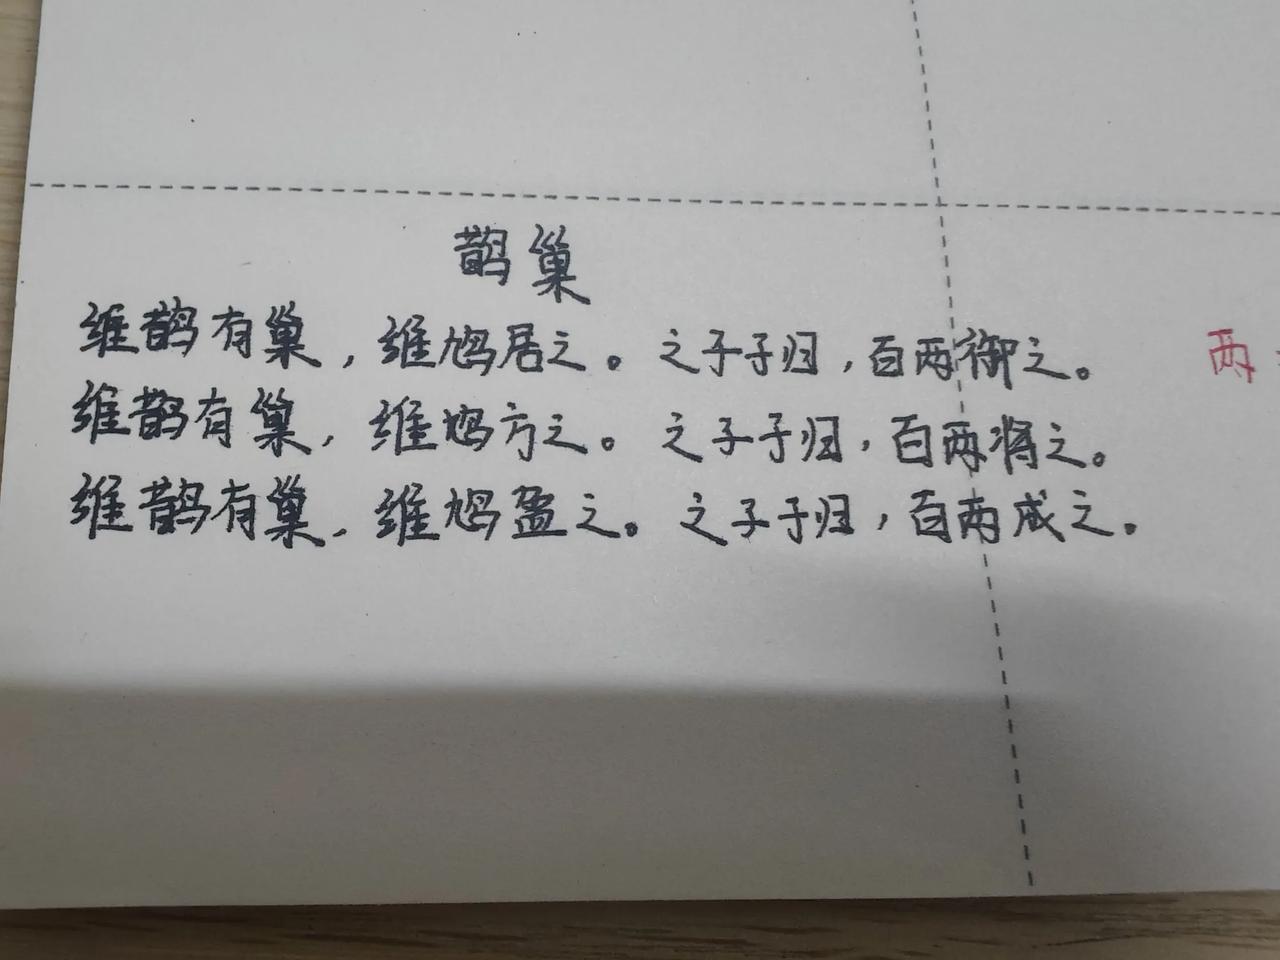 鹊巢
维鹊有巢，维鸠居之。之子于归，百两御之。 两
维鹊有巢，维鸠方之。之子于归，百两将之。
维鹊有巢，维鸠盈之。之子于归，百两成之。